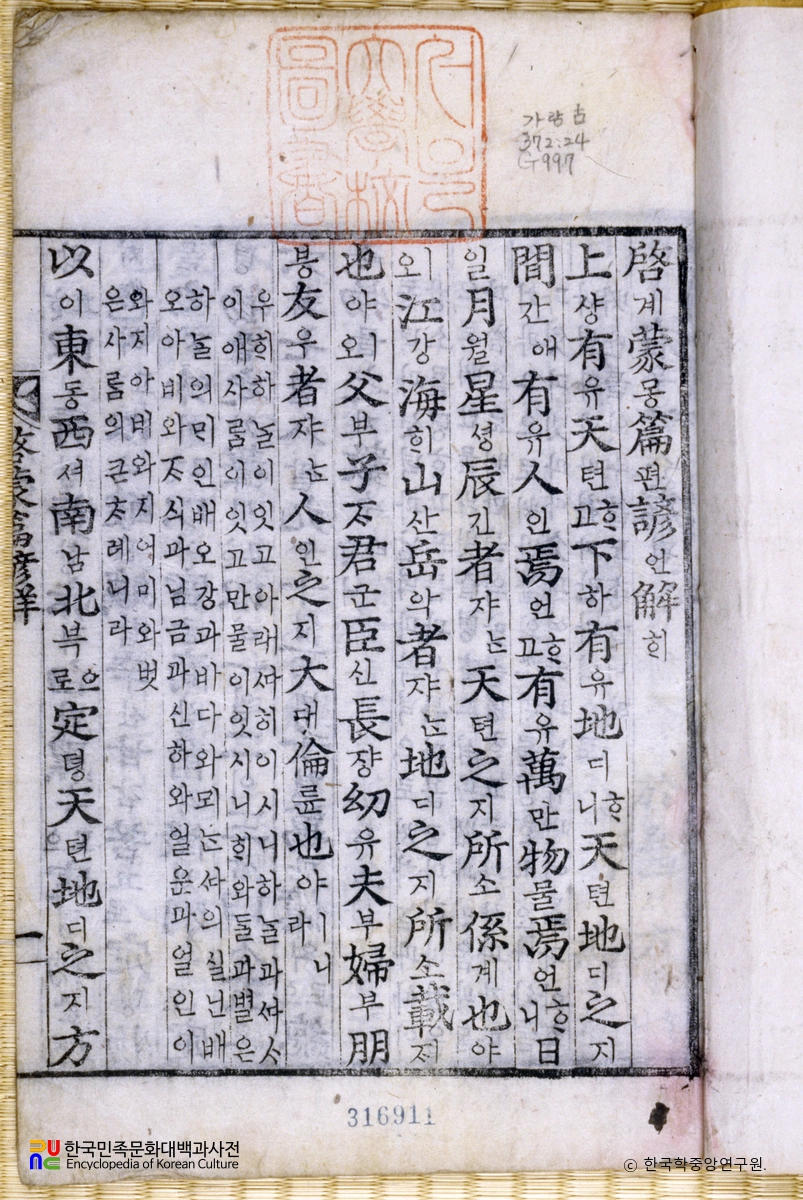 서울
大學校
圖書
가람古
372.24
G997
啓계蒙몽篇편諺언解ᄒᆡ
上샹有유天텬ᄒᆞ고下하有유地디ᄒᆞ니天텬地디之지
間간애有유人인焉언ᄒᆞ고有유萬만物물焉언ᄒᆞ니日
일月월星셩辰진者쟈ᄂᆞᆫ天텬之지所소係계也야
ㅣ오江강海ᄒᆡ山산岳악者쟈ᄂᆞᆫ地디之지所소載ᄌᆡ
也야ㅣ오父부子ᄌᆞ君군臣신長쟝幼유夫부婦부朋
븡友우者쟈ᄂᆞᆫ人인之지大대倫륜也야ㅣ니라
우희하ᄂᆞᆯ이잇고아래ᄯᅡ히이시니하ᄂᆞᆯ과ᄯᅡㅅ
이애사ᄅᆞᆷ이잇고만물이잇시니ᄒᆡ와ᄃᆞᆯ과별은
하ᄂᆞᆯ의ᄆᆡ인배오강과바다와뫼ᄂᆞᆫᄯᅡ의실닌배
오아비와ᄌᆞ식과님금과신하와얼운과얼인이
와지아비와지어미와벗
은사ᄅᆞᆷ의큰ᄎᆞ례니라
以이東동西셔南남北븍으로定뎡天텬地디之지方
啓蒙篇諺解 一
316911
한국민족문화대백과사전
Encyclopedia of Korean Culture
ⓒ 한국학중앙연구원.